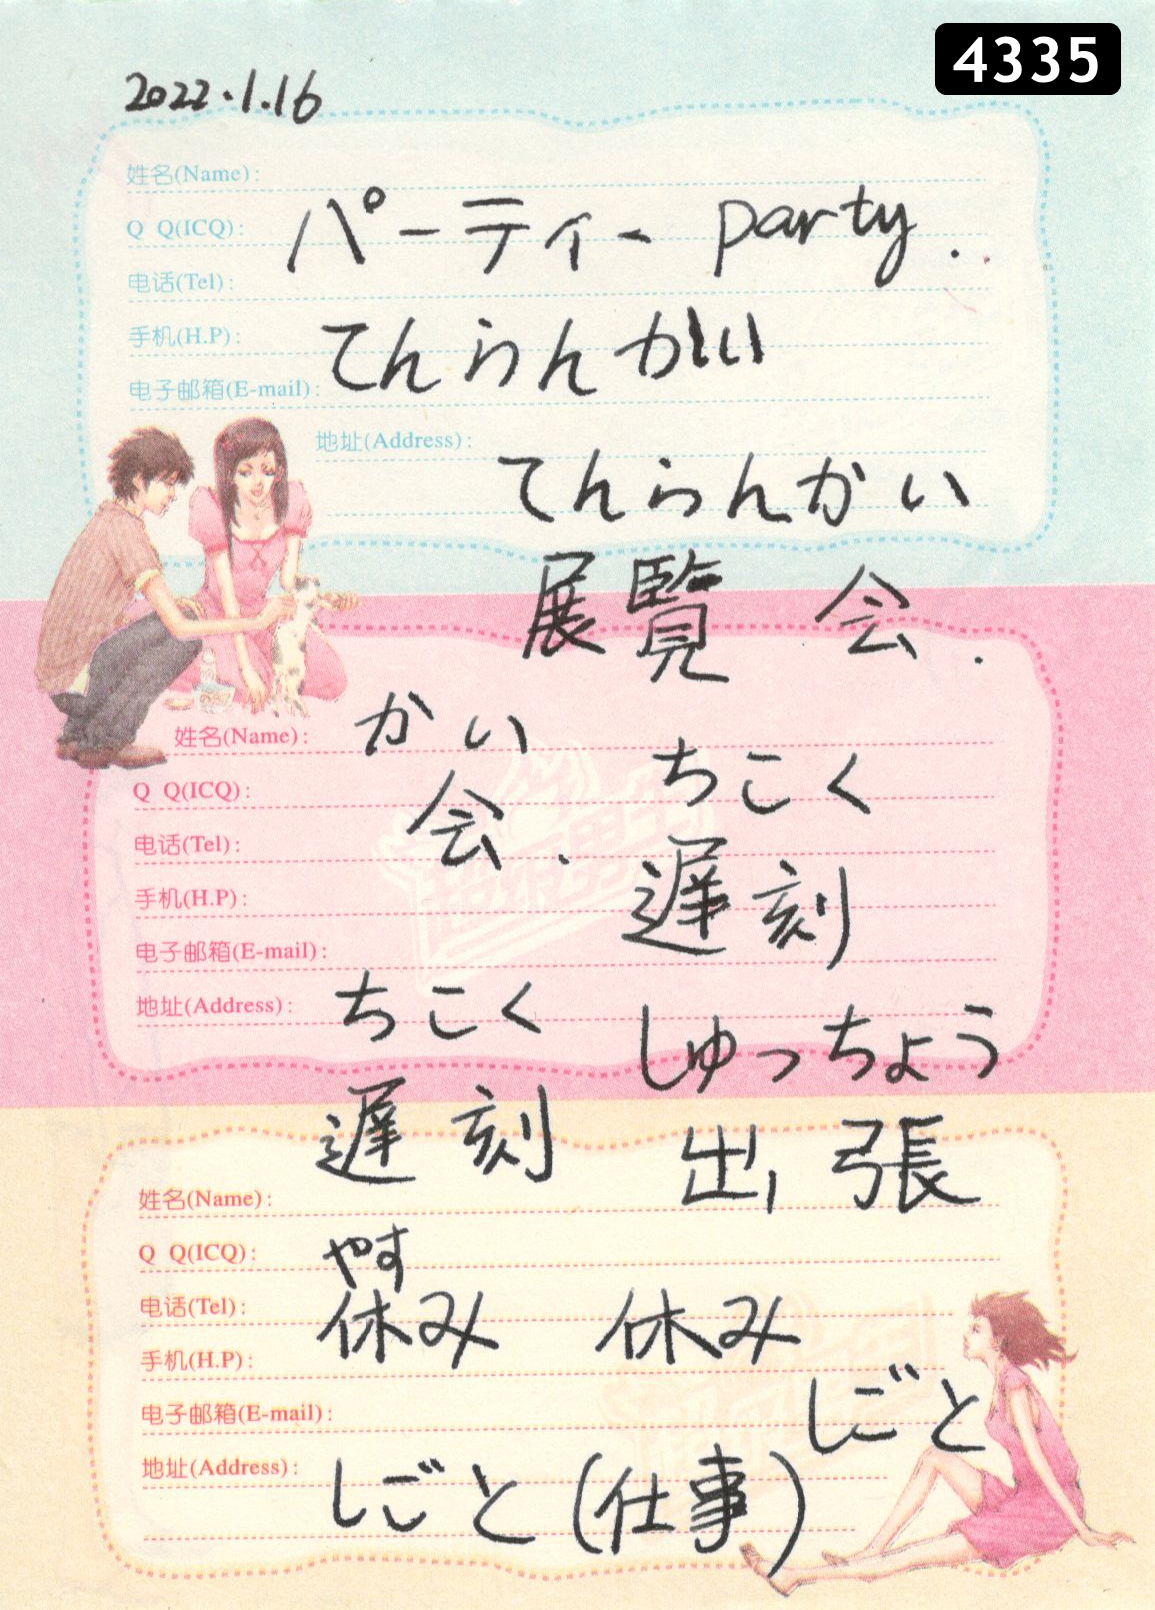 4335
2022.1.16
姓名(Name):
Q Q(ICQ):
パーティー party.
电话(Tel):
手机(H.P):
てんらんかい
电子邮箱(E-mail):
地址(Address):
てんらんかい
展覧 会.
姓名(Name):
かい
Q Q(ICQ):
ちこく
电话(Tel):
会.
手机(H.P):
遅刻
电子邮箱(E-mail):
地址(Address):
ちこく
しゅっちょう
遅刻
出張
姓名(Name):
Q Q(ICQ):
やす
电话(Tel):
休み 休み
手机(H.P):
电子邮箱(E-mail):
しごと
地址(Address):
しごと(仕事)